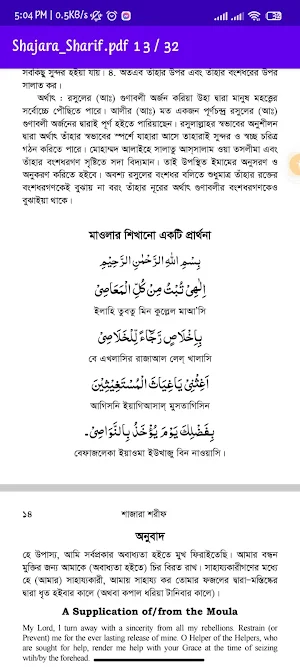 5:04 PM | 0.5KB/s
Shajara_Sharif.pdf 13 / 32
সবকিছু সুন্দর হইয়া যায়। ৪. অতএব তাঁহার উপর এবং তাঁহার বংশধরের উপর
সালাত কর।
অর্থাৎ : রসুলের (আঃ) গুণাবলী অর্জন করিয়া উহা দ্বারা মানুষ মহত্ত্বের
সর্বোচ্চে পৌঁছিতে পারে। আলীর (আঃ) মত একজন পূর্ণচন্দ্র রসুলের (আঃ)
গুণাবলী অর্জনের দ্বারাই পূর্ণ হইতে পারিয়াছেন। রসুলাল্লাহর স্বভাবের অনুশীলন
দ্বারা অর্থাৎ তাঁহার স্বভাবের স্পর্শে যাহারা আসে তাহারাই সুন্দর ও স্বচ্ছ চরিত্র
গঠন করিতে পারে। মোহাম্মদ আলাইহে সালাতু আস্‌সালাম ওয়া তসলীমা এবং
তাঁহার বংশধরগণ সৃষ্টিতে সদা বিদ্যমান। তাই উপস্থিত ইমামের অনুসরণ ও
অনুকরণ করিতে হইবে। অবশ্য রসুলের বংশধর বলিতে শুধুমাত্র তাঁহার রক্তের
বংশধরগণকেই বুঝায় না বরং তাঁহার নূরের অর্থাৎ গুণাবলীর বংশধরগণকেও
বুঝাইয়া থাকে।
মাওলার শিখানো একটি প্রার্থনা
بِسْمِ اللهِ الرَّحْمٰنِ الرَّحِيْمِ
اِلٰهِىْ تُبْتُ مِنْ كُلِّ الْمَعَاصِىْ
ইলাহি তুবতু মিন কুল্লেল মাআ'সি
بِاِخْلَاصٍ رَجَّاءً لِلْخَلَاصِىْ
বে এখলাসির রাজাআল লেল্ খালাসি
اَغِثْنِىْ يَاغِيَاثَ الْمُسْتَغِيْثِيْنَ
আগিসনি ইয়াগিআসাল্ মুসতাগিসিন
بِفَضْلِكَ يَوْمَ يُؤْخَذُ بِالنَّوَاصِىْ۔
বেফাজলেকা ইয়াওমা ইউখাজু বিন নাওয়াসি।
১৪
শাজারা শরীফ
অনুবাদ
হে উপাস্য, আমি সর্বপ্রকার অবাধ্যতা হইতে মুখ ফিরাইতেছি। আমার বন্ধন
মুক্তির জন্য আমাকে (অবাধ্যতা হইতে) চির বিরত রাখ। সাহায্যকারীগণের মধ্যে
হে (আমার) সাহায্যকারী, আমায় সাহায্য কর তোমার ফজলের দ্বারা–মস্তিষ্কের
দ্বারা ধৃত হইবার কালে (অথবা কপাল ধরিয়া টানিবার কালে)।
A Supplication of/from the Moula
My Lord, I turn away with a sincerity from all my rebellions. Restrain (or
Prevent) me for the ever lasting release of mine. O Helper of the Helpers, who
are sought for help, render me help with your Grace at the time of seizing
with/by the forehead.